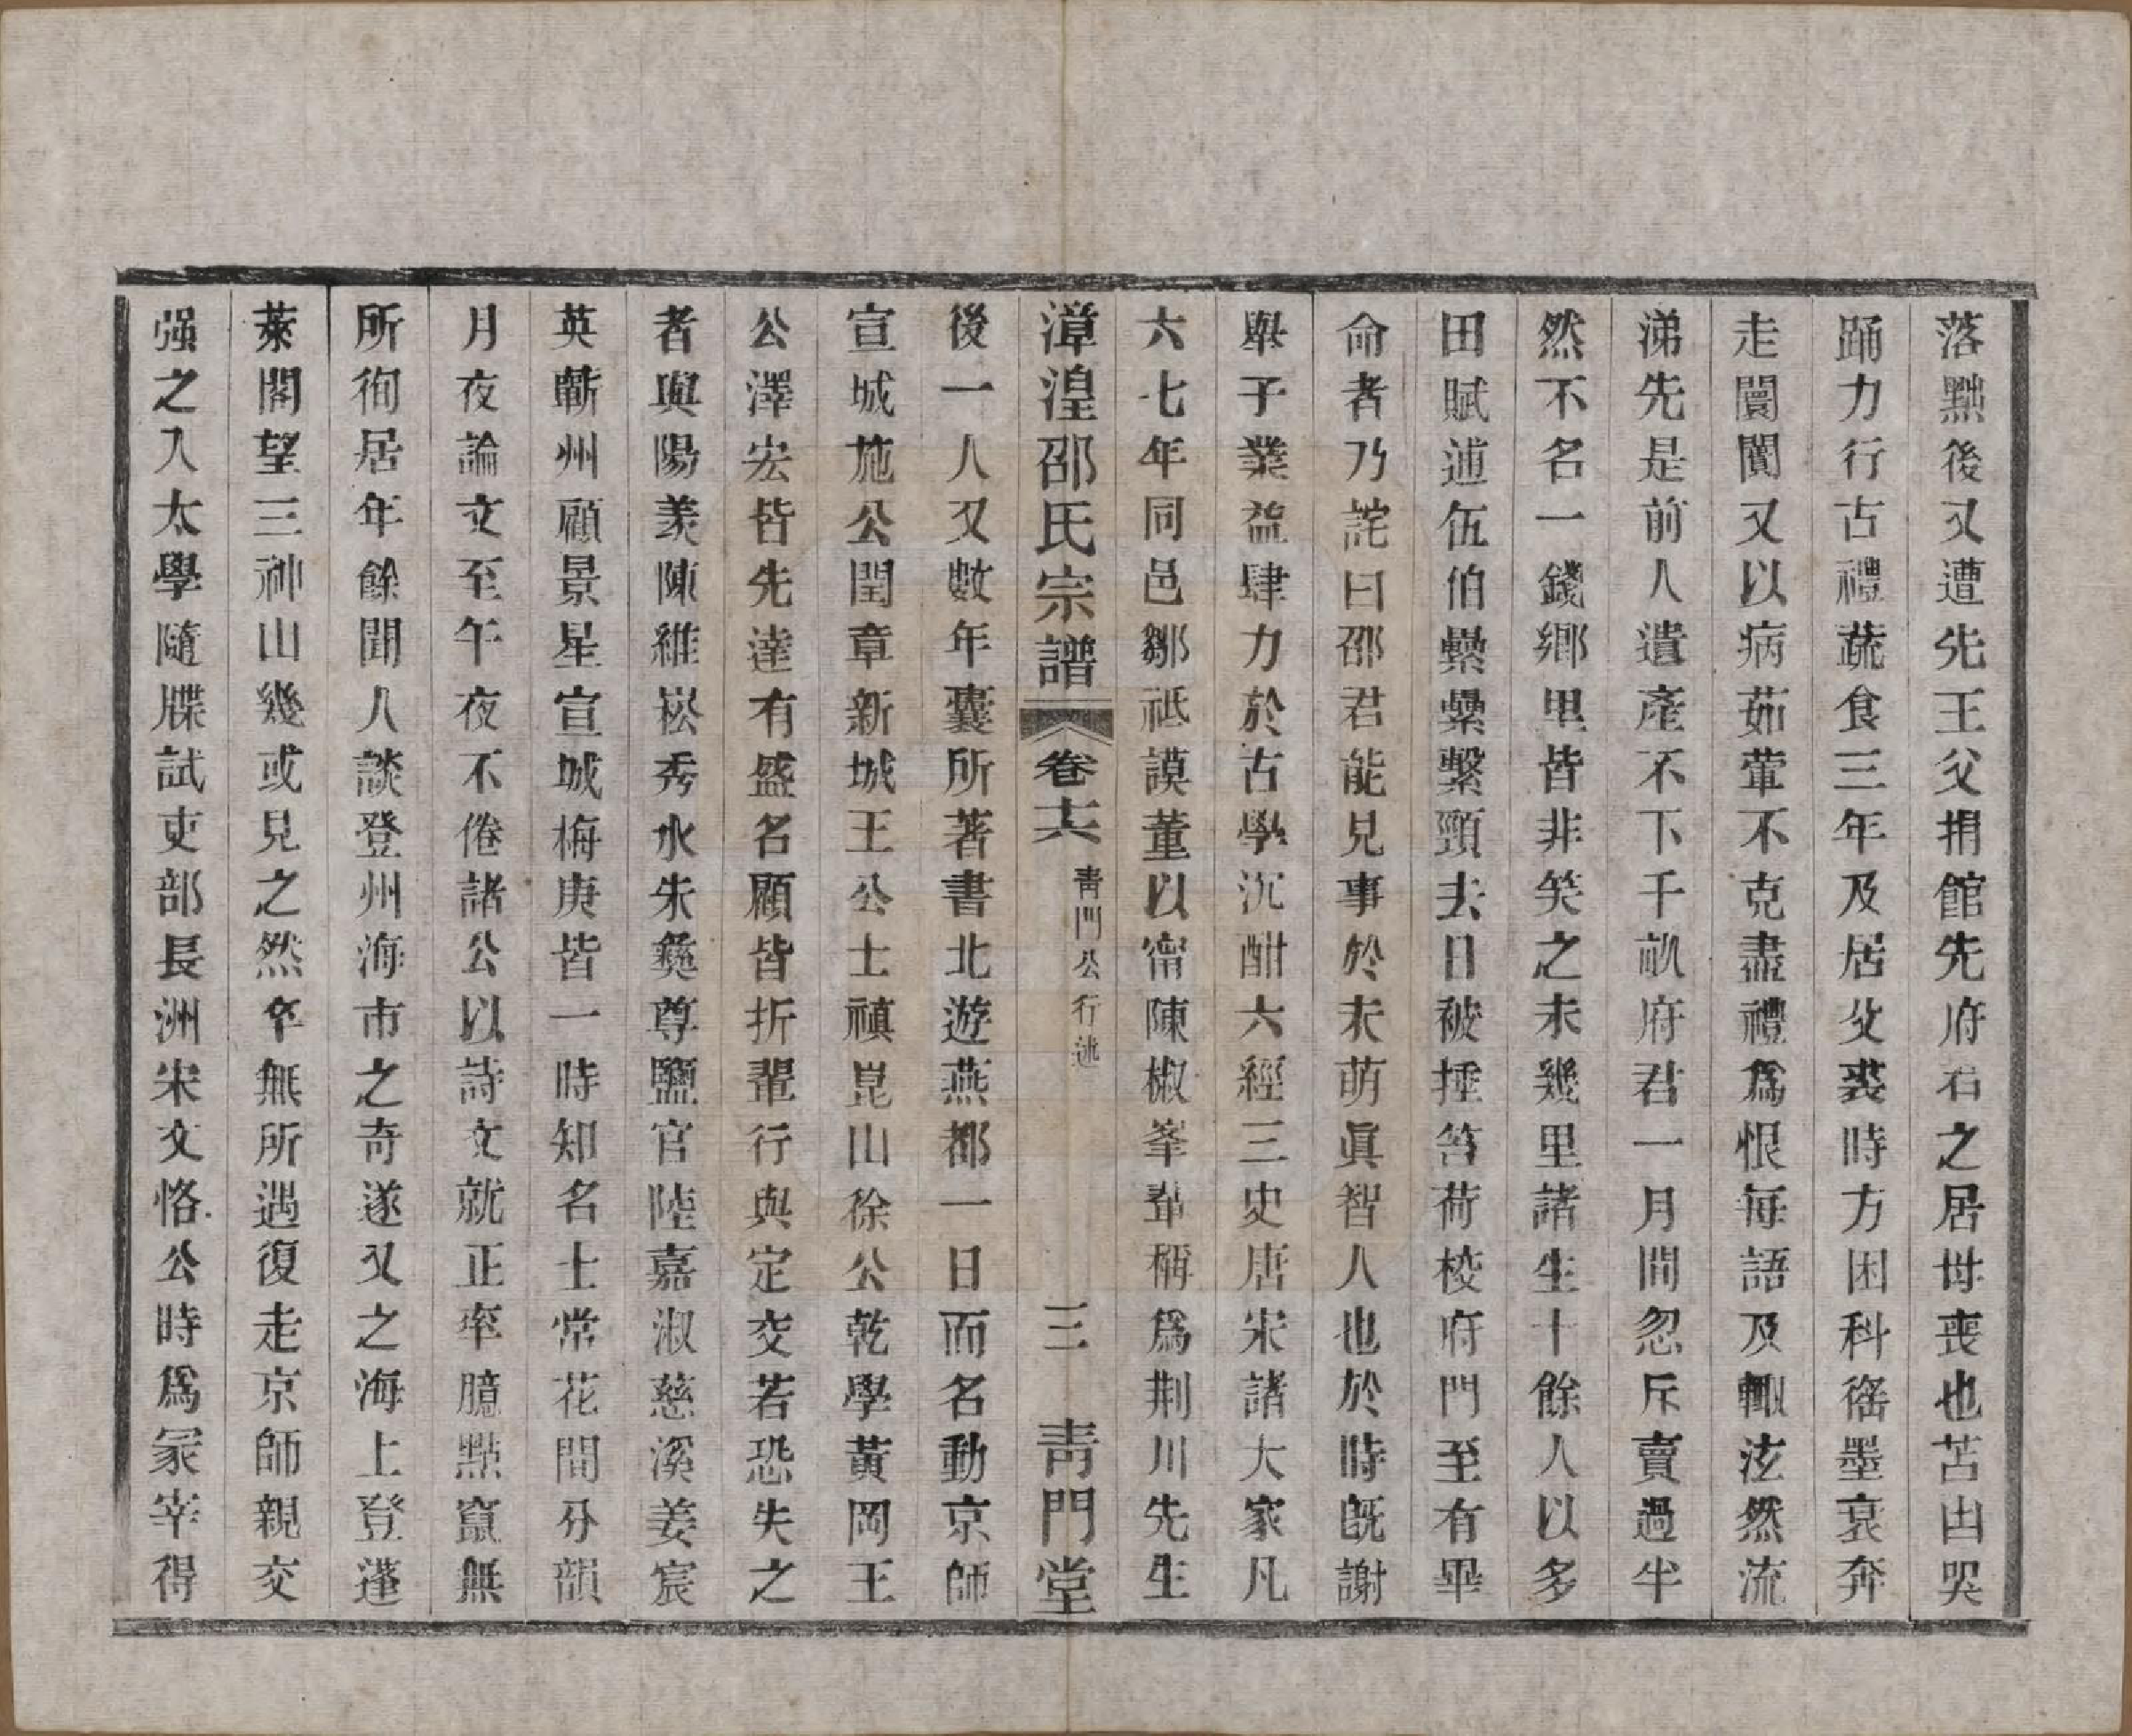 落黜後又遭先王父捐館先府君之居母喪也苫凷哭
踊力行古禮蔬食三年及居父喪時方困科徭墨衰奔
走闤闠又以病茹葷不克盡禮爲恨每語及輒泫然流
涕先是前人遺產不下千畝府君一月間忽斥賣過半
然不名一錢鄉里皆非笑之未幾里諸生十餘人以多
田賦逋伍伯纍纍繫頸去日被捶笞荷校府門至有畢
命者乃詫曰邵君能見事於未萌眞智人也於時旣謝
舉子業益肆力於古學沉酣六經三史唐宋諸大家凡
六七年同邑鄒祗謨董以甯陳椒峯輩稱爲荆川先生
漳湟邵氏宗譜 卷十六 青門公行述 三 青門堂
後一人又數年囊所著書北遊燕都一日而名動京師
宣城施公閏章新城王公士禎崑山徐公乾學黃岡王
公澤宏皆先達有盛名顧皆折輩行與定交若恐失之
者與陽羨陳維崧秀水朱彝尊鹽官陸嘉淑慈溪姜宸
英蘄州顧景星宣城梅庚皆一時知名士常花間分韻
月夜論文至午夜不倦諸公以詩文就正率臆點竄無
所徇居年餘聞人談登州海市之奇遂又之海上登蓬
萊閣望三神山幾或見之然卒無所遇復走京師親交
强之入太學隨牒試吏部長洲宋文恪公時爲冢宰得